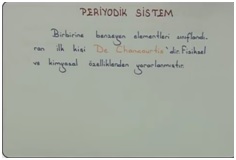 PERİYODİK SİSTEM
Birbirine benzeyen elementleri sınıflandı-
ran ilk kişi "De Chancourtis" dir. Fiziksel
ve kimyasal özelliklerden yararlanmıştır.